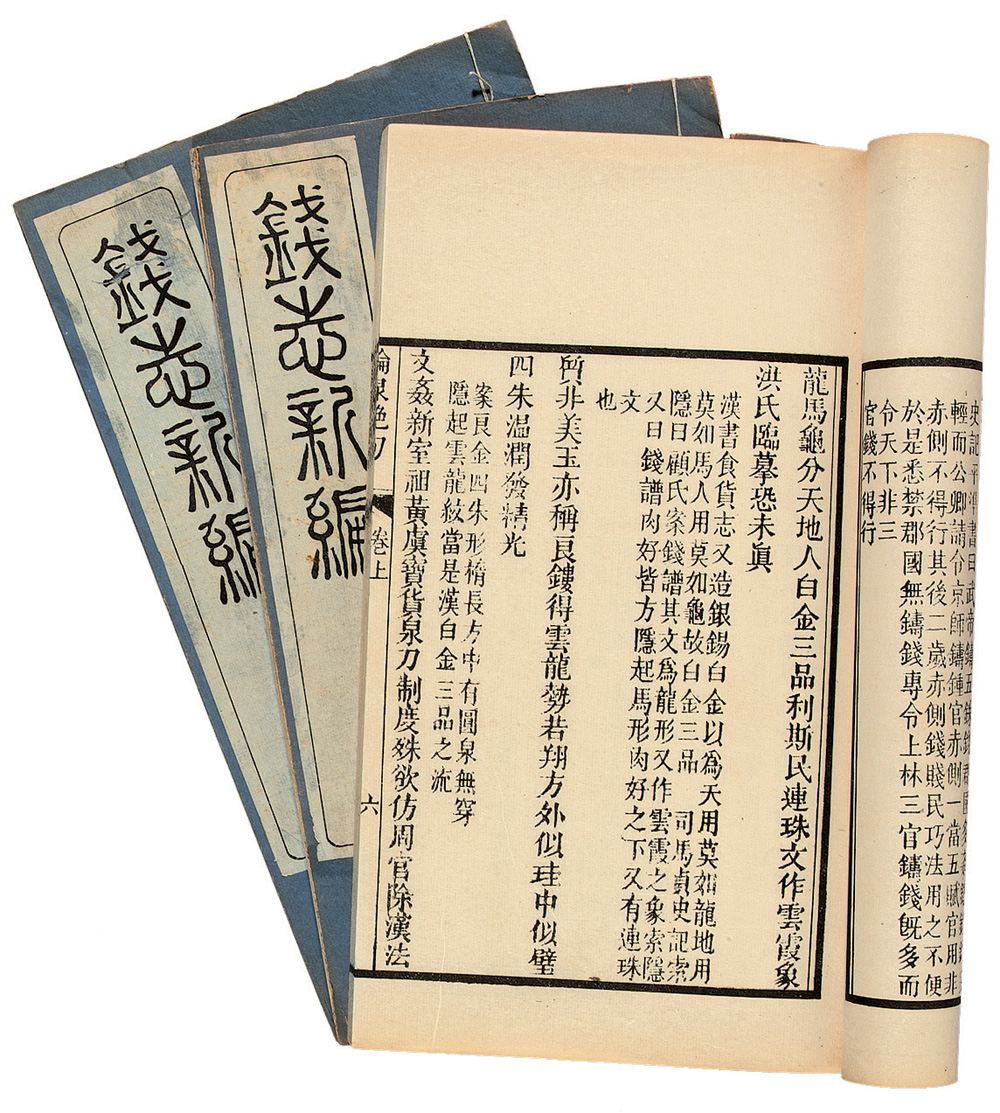 錢志新編
錢志新編
史記平準書曰武帝鑄五銖錢郡國多姦鑄錢
輕而公卿請令京師鑄鍾官赤側一當五賦官用非
赤側不得行其後二歲赤側錢賤民巧法用之不便
於是悉禁郡國無鑄錢專令上林三官鑄錢既多而
令天下非三
官錢不得行
龍馬龜分天地人白金三品利斯民連珠文作雲霞象
洪氏臨摹恐未眞
漢書食貨志又造銀錫白金以爲天用莫如龍地用
莫如馬人用莫如龜故白金三品　司馬貞史記索
隱曰顧氏案錢譜其文爲龍形又作雲霞之象索隱
又曰錢譜肉好皆方隱起馬形肉好之下又有連珠
文
也
質非美玉亦稱良鏤得雲龍勢若翔方外似珪中似璧
四朱温潤發精光
案良金四朱形橢長方中有圓泉無穿
隱起雲龍紋當是漢白金三品之流
文姦新室祖黃虞寶貨泉刀制度殊欲仿周官除漢法
論泉絕句 卷上 六